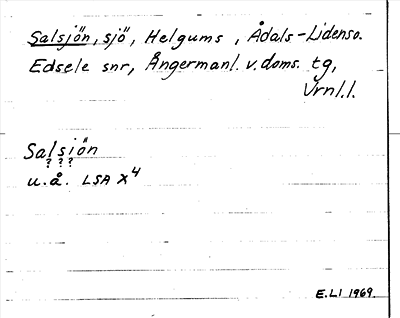 Salsjön, sjö, Helgums, Ådals-Lidenso.
Edsele snr, Ångermanl. v. doms. tg,
Vrnl.l.
Salsjön
? ? ?
u.å. LSA X4
E.LI 1969.